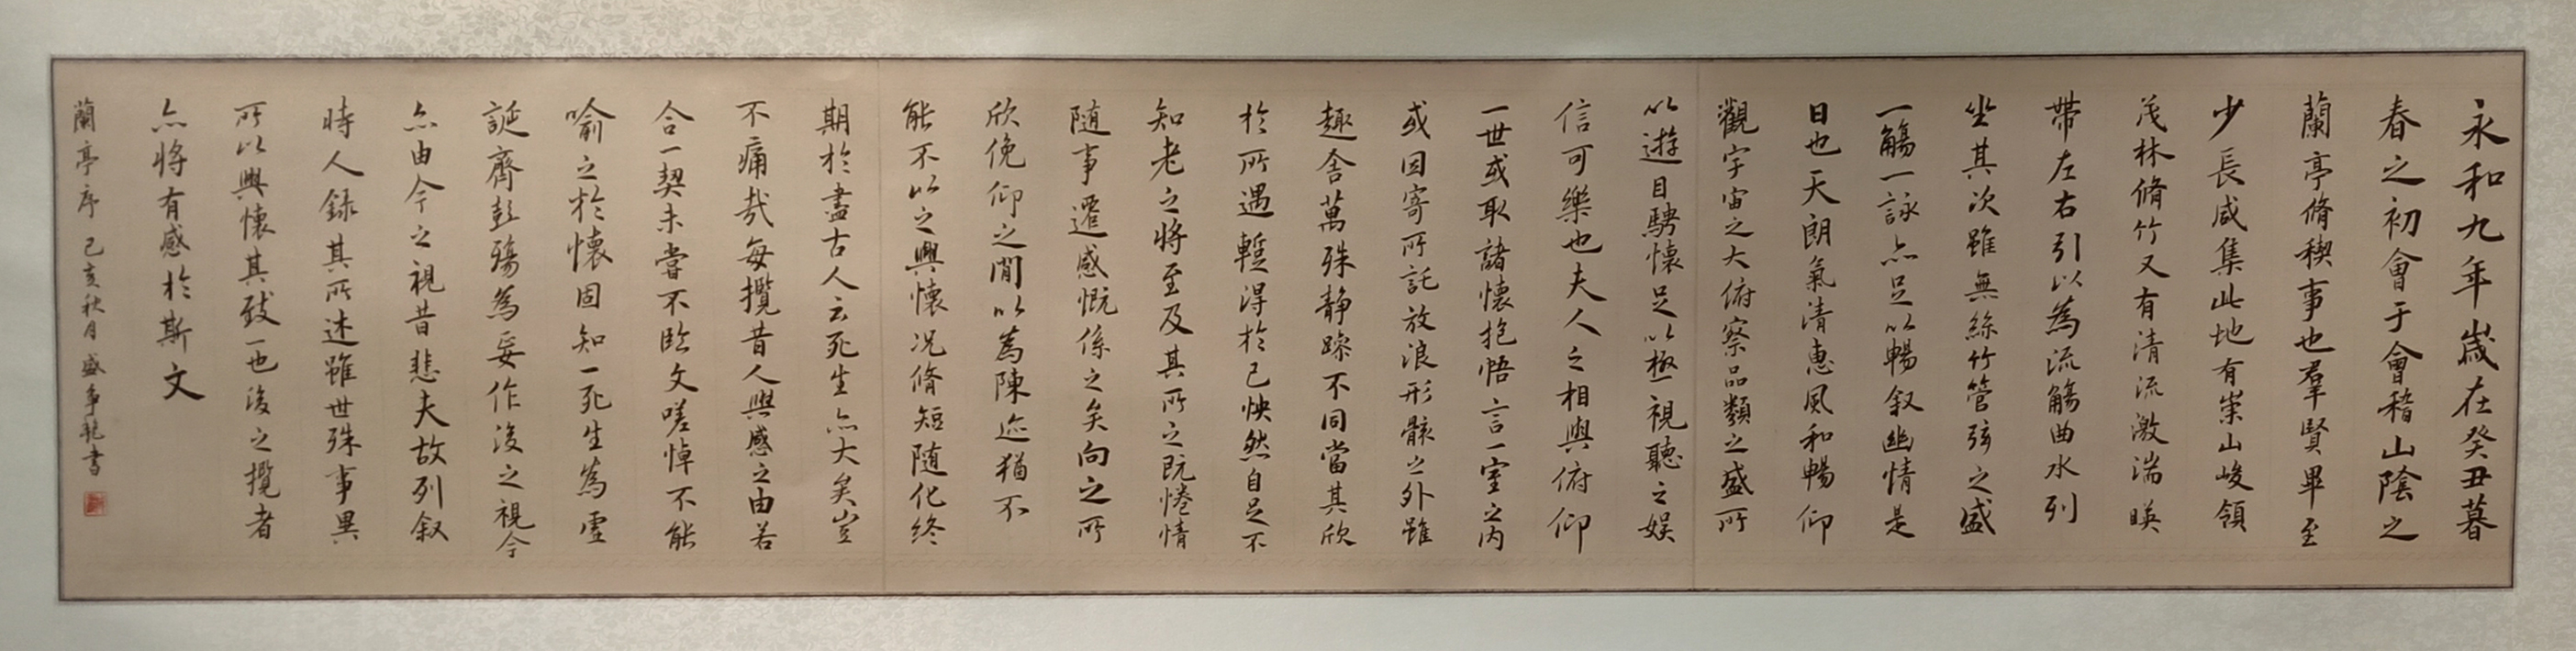 永和九年歲在癸丑暮
春之初會于會稽山陰之
蘭亭脩稧事也羣賢畢至
少長咸集此地有崇山峻領
茂林脩竹又有清流激湍暎
帶左右引以為流觴曲水列
坐其次雖無絲竹管弦之盛
一觴一詠亦足以暢叙幽情是
日也天朗氣清惠風和暢仰
觀宇宙之大俯察品類之盛所
以遊目騁懷足以極視聽之娛
信可樂也夫人之相與俯仰
一世或取諸懷抱悟言一室之內
或因寄所託放浪形骸之外雖
趣舍萬殊静躁不同當其欣
於所遇蹔得於己怏然自足不
知老之將至及其所之既惓情
隨事遷感慨係之矣向之所
欣俛仰之閒以為陳迹猶不
能不以之興懷況脩短隨化終
期於盡古人云死生亦大矣豈
不痛哉每攬昔人興感之由若
合一契未嘗不臨文嗟悼不能
喻之於懷固知一死生為虛
誕齊彭殤為妄作後之視今
亦由今之視昔悲夫故列叙
時人錄其所述雖世殊事異
所以興懷其致一也後之攬者
亦將有感於斯文
蘭亭序 己亥秋月 盛爭艳書